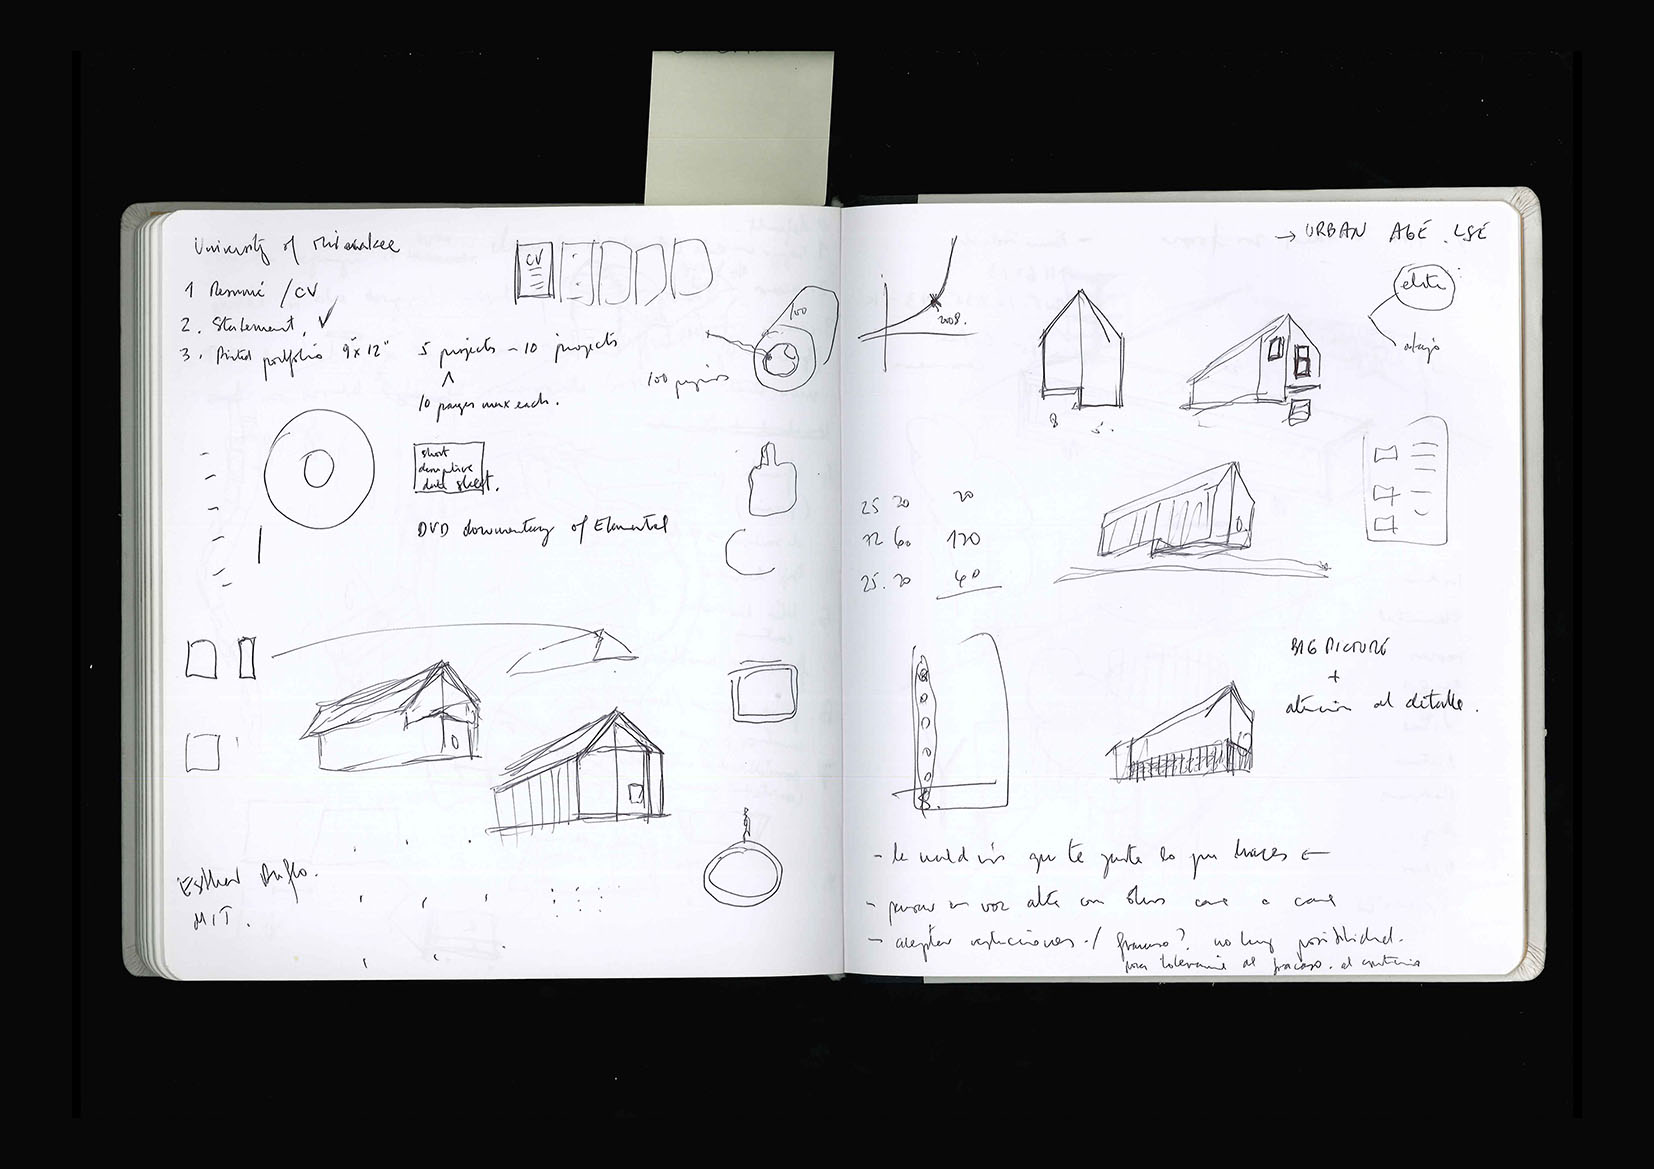 University of Milwaukee
1 Resumé / CV
2. Statement.
3. Printed portfolio 9"x12"
5 projects - 10 projects
10 pages max each.
CV
100
100 páginas
short
descriptive
data sheet.
DVD documentary of Elemental
Esther Duflo.
MIT.
→ URBAN AGE. LSE
2008.
elite
abajo
8 5.
25 20 20
72 60 120
25. 20 40
BIG PICTURE
+
atención al detalle.
- que te guste lo que haces ←
- pensar en voz alta con otros cara a cara
- aceptar restricciones. / fracaso? no hay posibilidad.
para tolerancia al fracaso. al